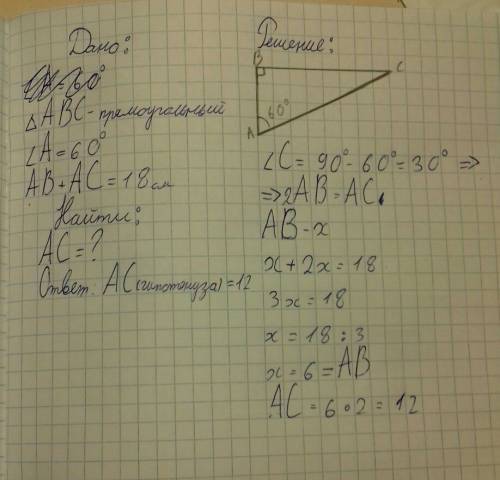 Дано:
△ABC - прямоугольный
∠A = 60°
AB + AC = 18 см
Найти:
AC = ?
Ответ. AC (гипотонуза) = 12
Решение:
B
C
A
60°
∠C = 90° - 60° = 30° =>
=> 2AB = AC.
AB - x
x + 2x = 18
3x = 18
x = 18 : 3
x = 6 = AB
AC = 6 • 2 = 12